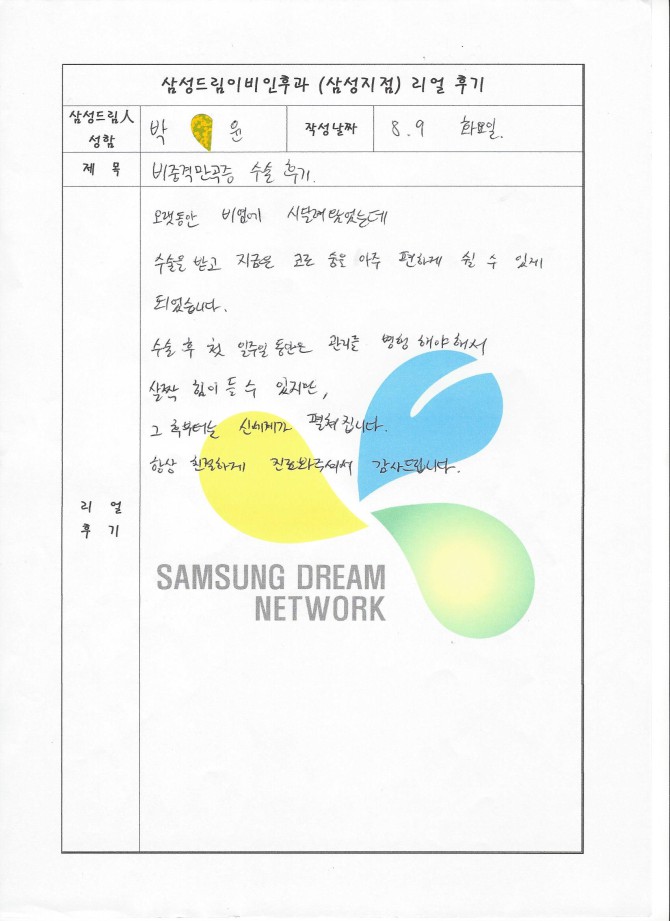 삼성드림이비인후과 (삼성지점) 리얼 후기
삼성드림人 성함
박 윤
작성날짜
8.9 화요일.
제 목
비중격만곡증 수술 후기.
오랫동안 비염에 시달려왔었는데
수술을 받고 지금은 코로 숨을 아주 편하게 쉴 수 있게
되었습니다.
수술 후 첫 일주일 동안은 관리를 병행 해야해서
살짝 힘이 들 수 있지만,
그 후부터는 신세계가 펼쳐집니다.
항상 친절하게 진료봐주셔서 감사드립니다.
리 얼
후 기
SAMSUNG DREAM
NETWORK